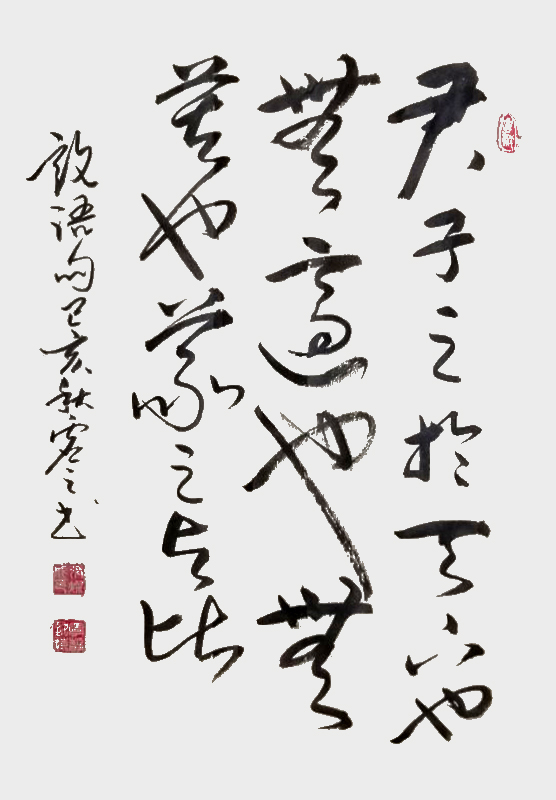 君子之於天下也
無適也無
莫也義之与比
語句己亥秋之书